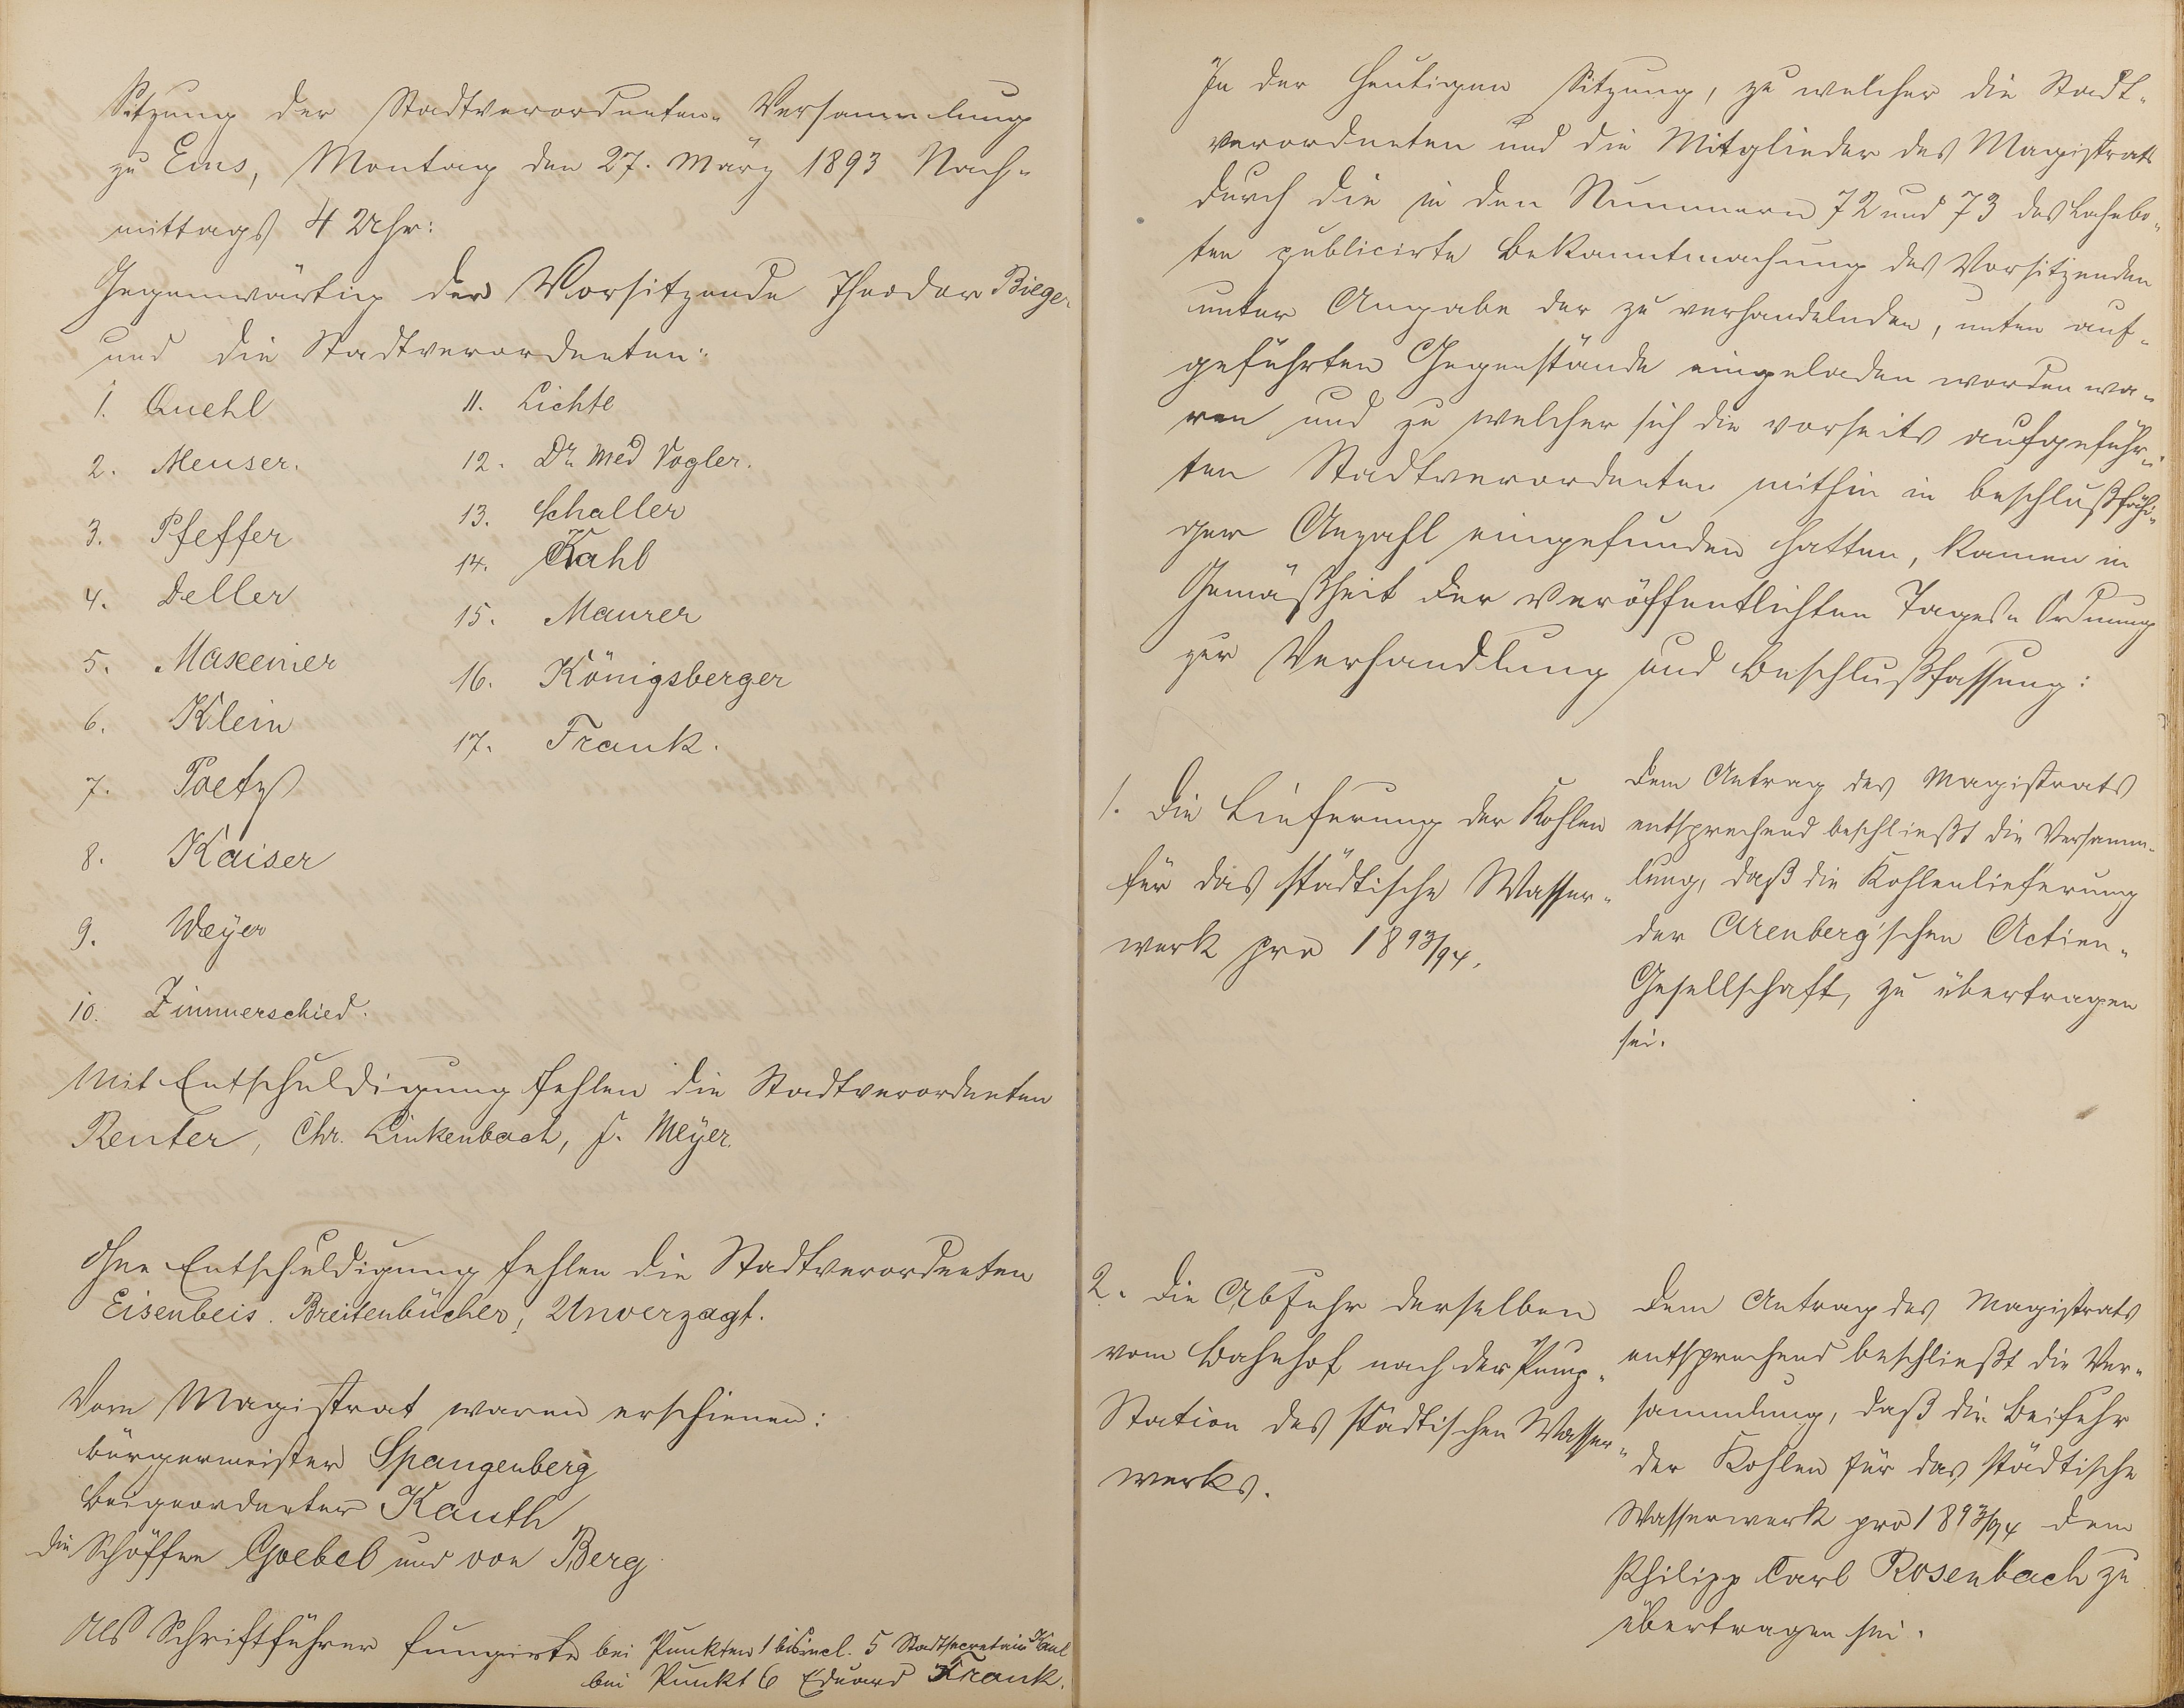 Sitzung der Stadtverordneten-Versammlung
zu Ems, Montag den 27. März 1893 Nach-
mittags 4 Uhr:
Gegenwärtig der Vorsitzende Theodor Bieger
und die Stadtverordneten:
1. Quehl
2. Meuser.
3. Pfeffer
4. Deller
5. Maxeiner
6. Klein
7. Paetz
8. Kaiser
9. Weÿer
10. Zimmerschied.
11. Lichte
12. Dr. med Vogler.
13. Schaller
14. Kahl
15. Maurer
16. Königsberger
17. Frank.
Mit Entschuldigung fehlen die Stadtverordneten
Reuter, Chr. Linkenbach, F. Meÿer.
Ohne Entschuldigung fehlen die Stadtverordneten
Eisenbeis. Breitenbücher, Unverzagt.
Vom Magistrat waren erschienen:
Bürgermeister Spangenberg
Beigeordneter Kauth
die Schöffen Goebel und von Berg
Als Schriftführer fungirte bei Punkten 1 bis incl. 5 Stadtsecretair Kaul
bei Punkt 6 Eduard Frank.
In der heutigen Sitzung, zu welcher die Stadt-
verordneten und die Mitglieder des Magistrats
durch die in den Nummern 72 und 73 des Lahnbo-
ten publicirte Bekanntmachung des Vorsitzenden
unter Angabe der zu verhandelnden, unten auf-
geführten Gegenstände eingeladen worden wa-
ren und zu welcher sich die vorseits aufgeführ-
ten Stadtverordneten mithin in beschlußfähi-
ger Anzahl eingefunden hatten, kamen in
Gemäßheit der veröffentlichten Tages-Ordnung
zur Verhandlung und Beschlußfassung:
1. Die Lieferung der Kohlen
für das städtische Wasser-
werk pro 1893/94.
Dem Antrag des Magistrats
entsprechend beschließt die Versamm-
lung, daß die Kohlenlieferung
der Arenberg'schen Actien-
Gesellschaft, zu übertragen
sei.
2. Die Abfuhr derselben
vom Bahnhof nach der Pump-
Station des städtischen Wasser-
werks.
Dem Antrag des Magistrats
entsprechend beschließt die Ver-
sammlung, daß die Beifuhr
der Kohlen für das städtische
Wasserwerk pro 1893/94 dem
Philipp Carl Rosenbach zu
übertragen sei.